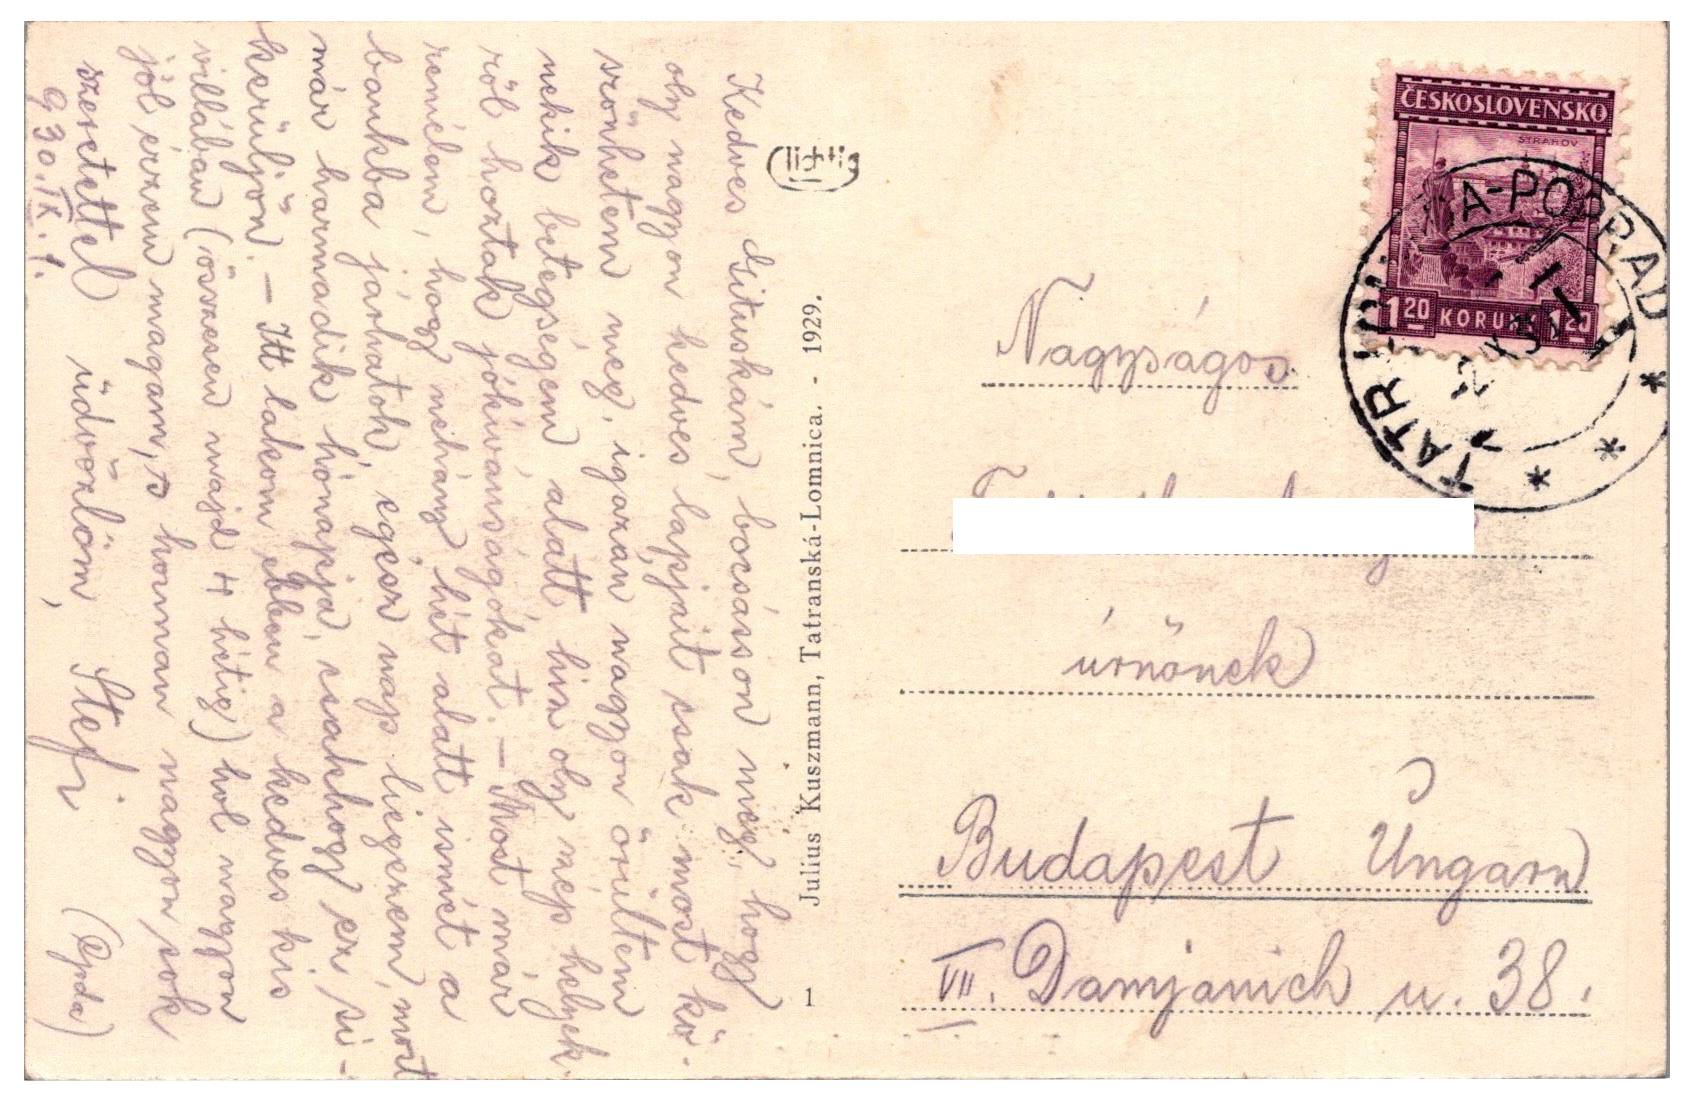 Kedves Gituskám, bocsásson meg, hogy
oly nagyon kedves lapjait csak most kö-
szönhetem meg, igazán nagyon örültem
nekik betegségem alatt, hisz oly szép helyek-
ről hoztak jókívánságokat. – Most már
remélem, hogy néhány hét alatt ismét a
bankba járhatok, egész nap liegezem, most
már harmadik hónapja, csakhogy ez si-
kerüljön. – Itt lakom ebben a kedves kis
villában (összesen majd 4 hétig) hol nagyon
jól érzem magam, s honnan nagyon sok
szeretettel üdvözlöm, Stefi
930. IX. 1.
lichtig
Julius Kuszmann, Tatranská-Lomnica. - 1929.
1
ČESKOSLOVENSKO
STRAHOV
1 20 KORUNY 1 20
A-POPRAD
Nagyságos
úrnőnek
Budapest Ungarn
VII. Damjanich u. 38.